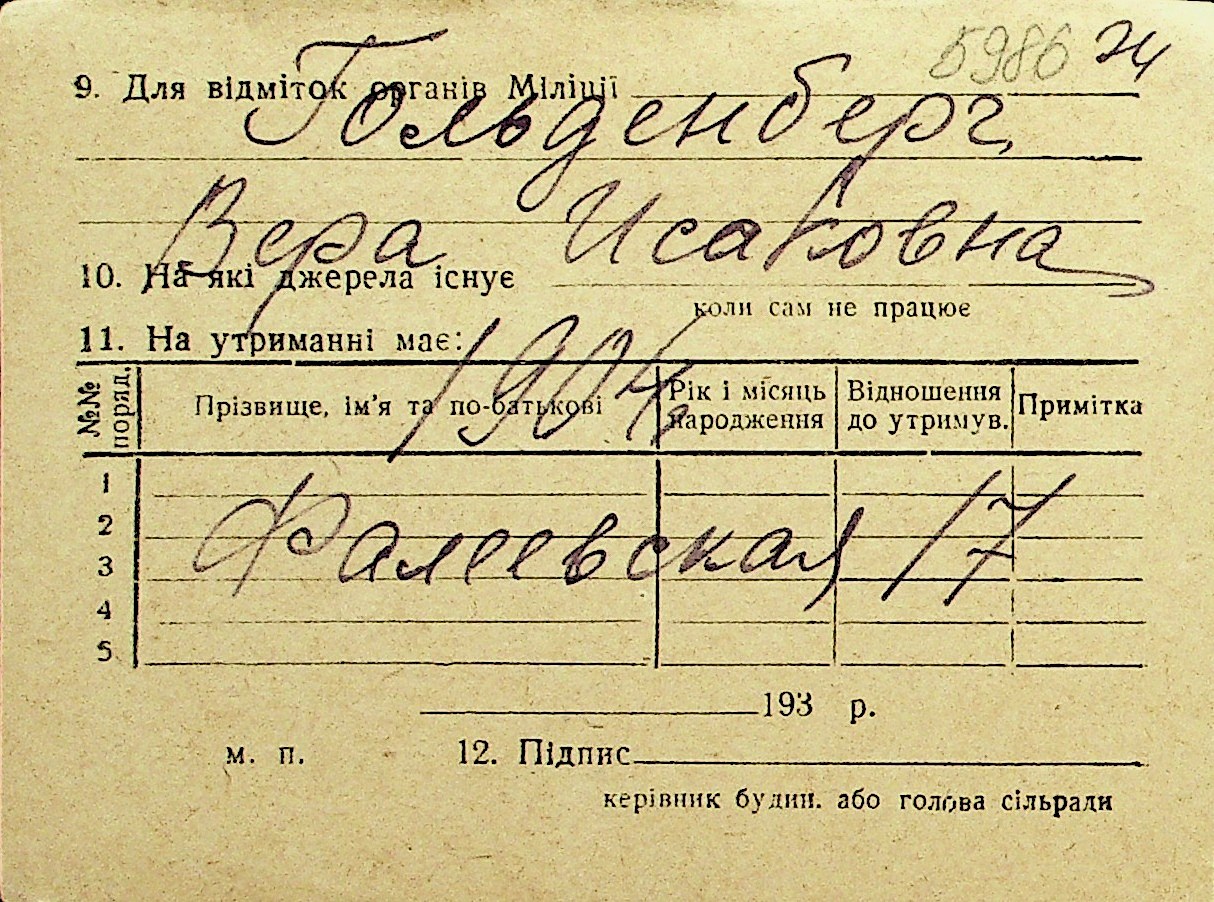 5986 Ж
9. Для відміток органів Міліції
Гольденберг,
Вера Исаковна
10. На які джерела існує
коли сам не працює
11. На утриманні має:
1904
№№ поряд. Прізвище, ім'я та по-батькові Рік і місяць народження Відношення до утримув. Примітка
1
2
3
4
5
Фалеевская 17
193 р.
м. п. 12. Підпис
керівник будин. або голова сільради